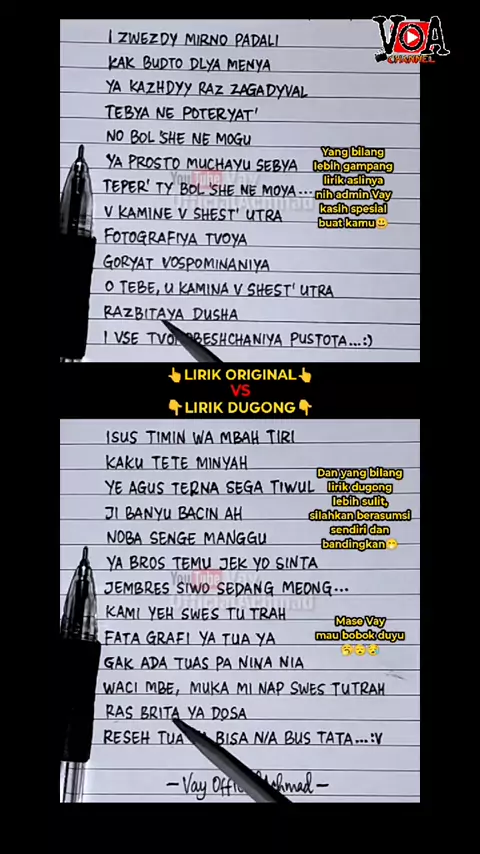 VOA
CHANNEL
I ZWEZDY MIRNO PADALI
KAK BUDTO DLYA MENYA
YA KAZHDYY RAZ ZAGADYVAL
TEBYA NE POTERYAT'
NO BOL'SHE NE MOGU
YA PROSTO MUCHAYU SEBYA
TEPER' TY BOL'SHE NE MOYA...
V KAMINE V SHEST' UTRA
FOTOGRAFIYA TVOYA
GORYAT VOSPOMINANIYA
O TEBE, U KAMINA V SHEST' UTRA
RAZBITAYA DUSHA
I VSE PUSTOTA...:)
Yang bilang
lebih gampang
lirik aslinya
nih admin Vay
kasih spesial
buat kamu😀
YouTube Vay
Official Achmad
👆LIRIK ORIGINAL👆
VS
👇LIRIK DUGONG👇
ISUS TIMIN WA MBAH TIRI
KAKU TETE MINYAH
YE AGUS TERNA SEGA TIWUL
JI BANYU BACIN AH
NOBA SENGE MANGGU
YA BROS TEMU JEK YO SINTA
JEMBRES SIWO SEDANG MEONG...
KAMI YEH SWES TUTRAH
FATA GRAFI YA TUA YA
GAK ADA TUAS PA NINA NIA
WACI MBE, MUKA MI NAP SWES TUTRAH
RAS BRITA YA DOSA
RESEH TUA BISA NIA BUS TATA...:V
Dan yang bilang
lirik dugong
lebih sulit,
silahkan berasumsi
sendiri dan
bandingkan🤭
YouTube Vay
Official Achmad
Mase Vay
mau bobok duyu
🥱😴😪
- Vay Official Achmad -